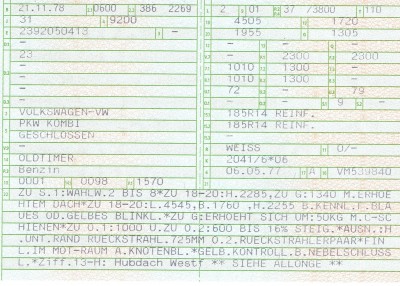 21.11.78 0600 386 2269 2 01 37 /3800 110
31 9200 4505 1720
2392050413 - 1955 1305
- - -
23 - 2300 2300
- 1010 1300 -
- 1010 1300 -
- 72 - 79
- - - 9 -
VOLKSWAGEN-VW 185R14 REINF.
PKW KOMBI 185R14 REINF.
GESCHLOSSEN -
- WEISS 0/-
OLDTIMER 2041/6*06
Benzin 06.05.77 A VM539840
0001 0098 1570
ZU S.1:WAHLW.2 BIS 8*ZU 18-20:H.2285,ZU G:1340 M.ERHOE
HTEM DACH*ZU 18-20:L.4545,B.1760 ,H.2255 B.KENNL.F.BLA
UES OD.GELBES BLINKL.*ZU G:ERHOEHT SICH UM:50KG M.C-SC
HIENEN*ZU O.1:1000 U.ZU O.2:600 BIS 16% STEIG.*AUSN.:H
.UNT.RAND RUECKSTRAHL.725MM O.2.RUECKSTRAHLERPAAR*FIN
L.IM MOT-RAUM A.KNOTENBL.*GELB.KONTROLL.B.NEBELSCHLUSS
L.*Ziff.13-H: Hubdach Westf ** SIEHE ALLONGE **